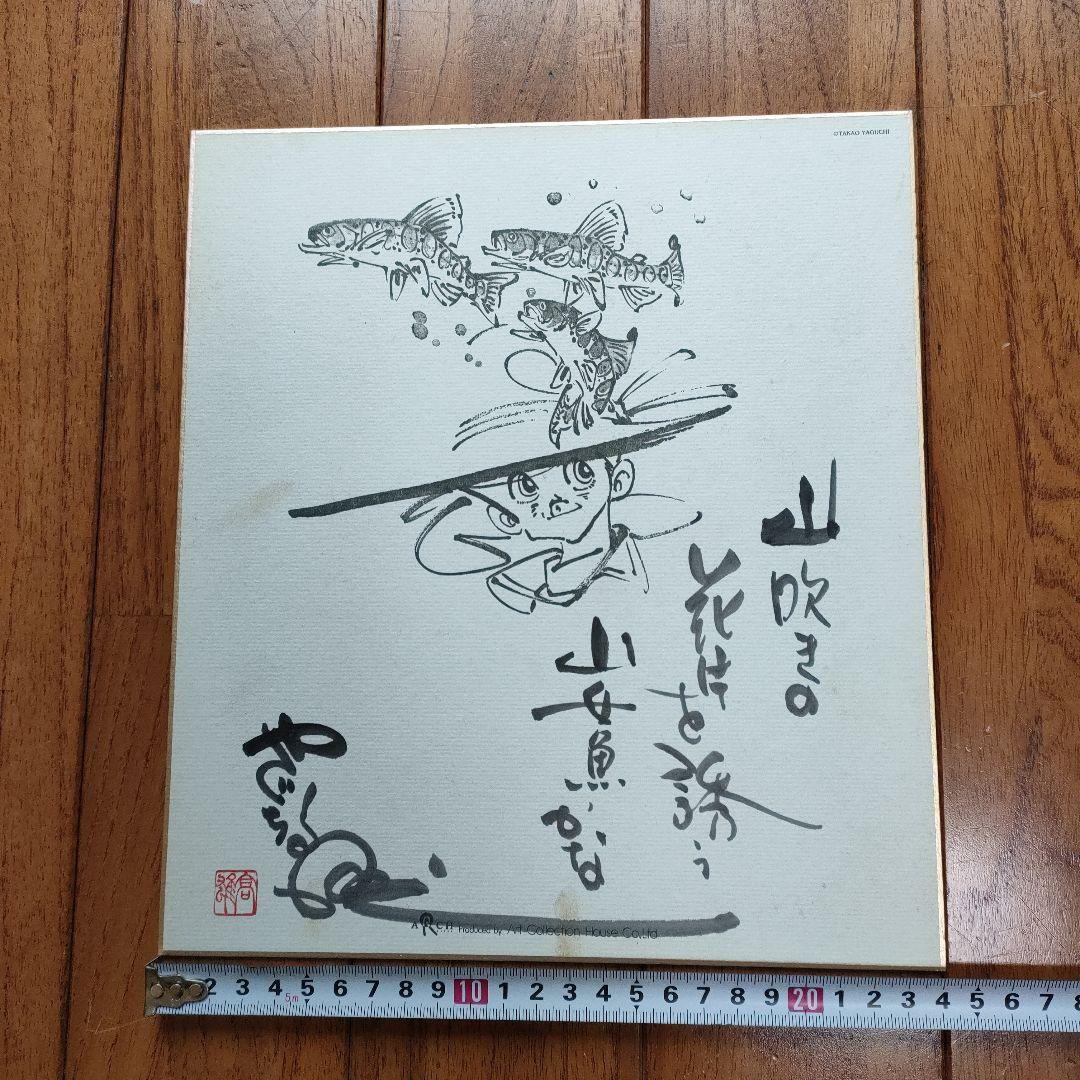 ©TAKAO YAGUCHI
山吹きの
花びらを
山女魚かな
A R C.H. Produced by Art Collection House Co.,Ltd.
2 3 4 5 6 7 8 9 10 1 2 3 4 5 6 7 8 9 20 1 2 3 4 5 6 7 8
5m